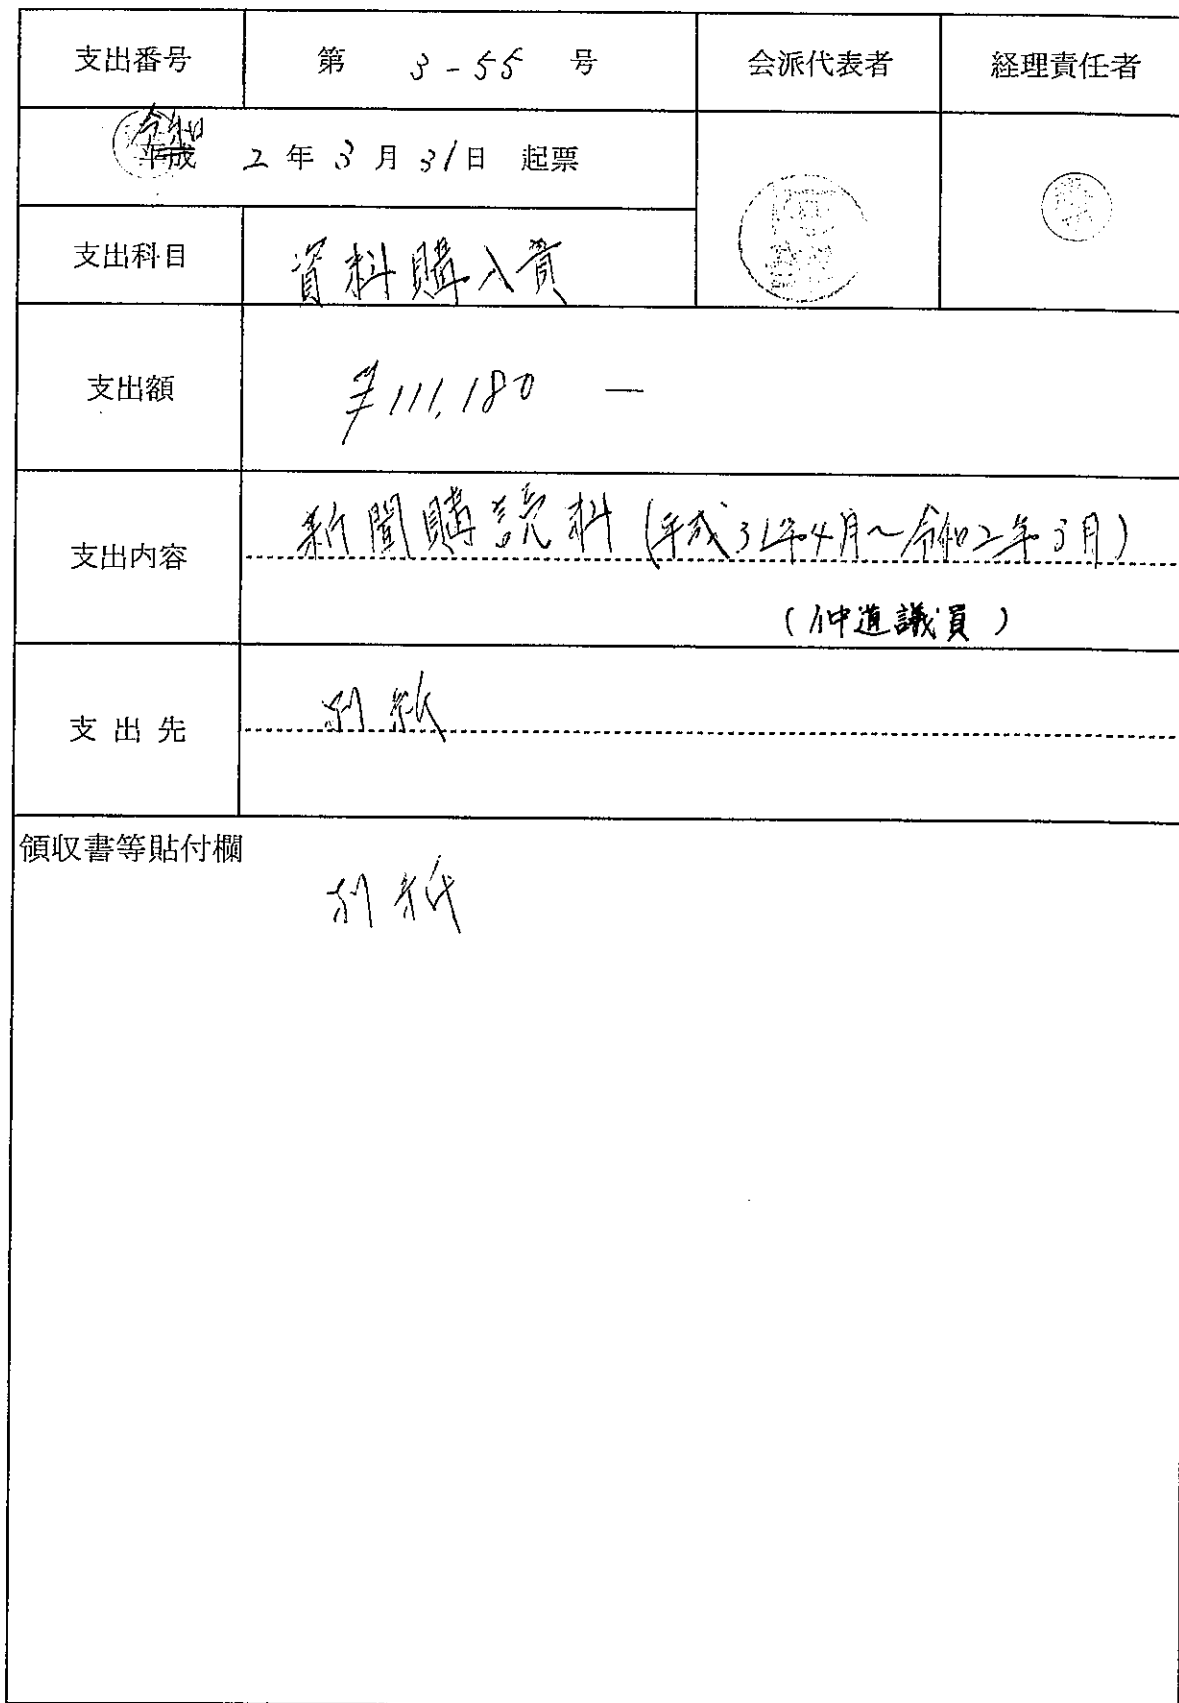 支出番号 第 3-55 号 会派代表者 経理責任者
令和
平成 2 年 3 月 31 日 起票
支出科目 資料購入費
支出額 ¥111,180 —
支出内容 新聞購読料 (平成31年4月〜令和2年3月)
(仲道議員)
支出先 別紙
領収書等貼付欄
別紙